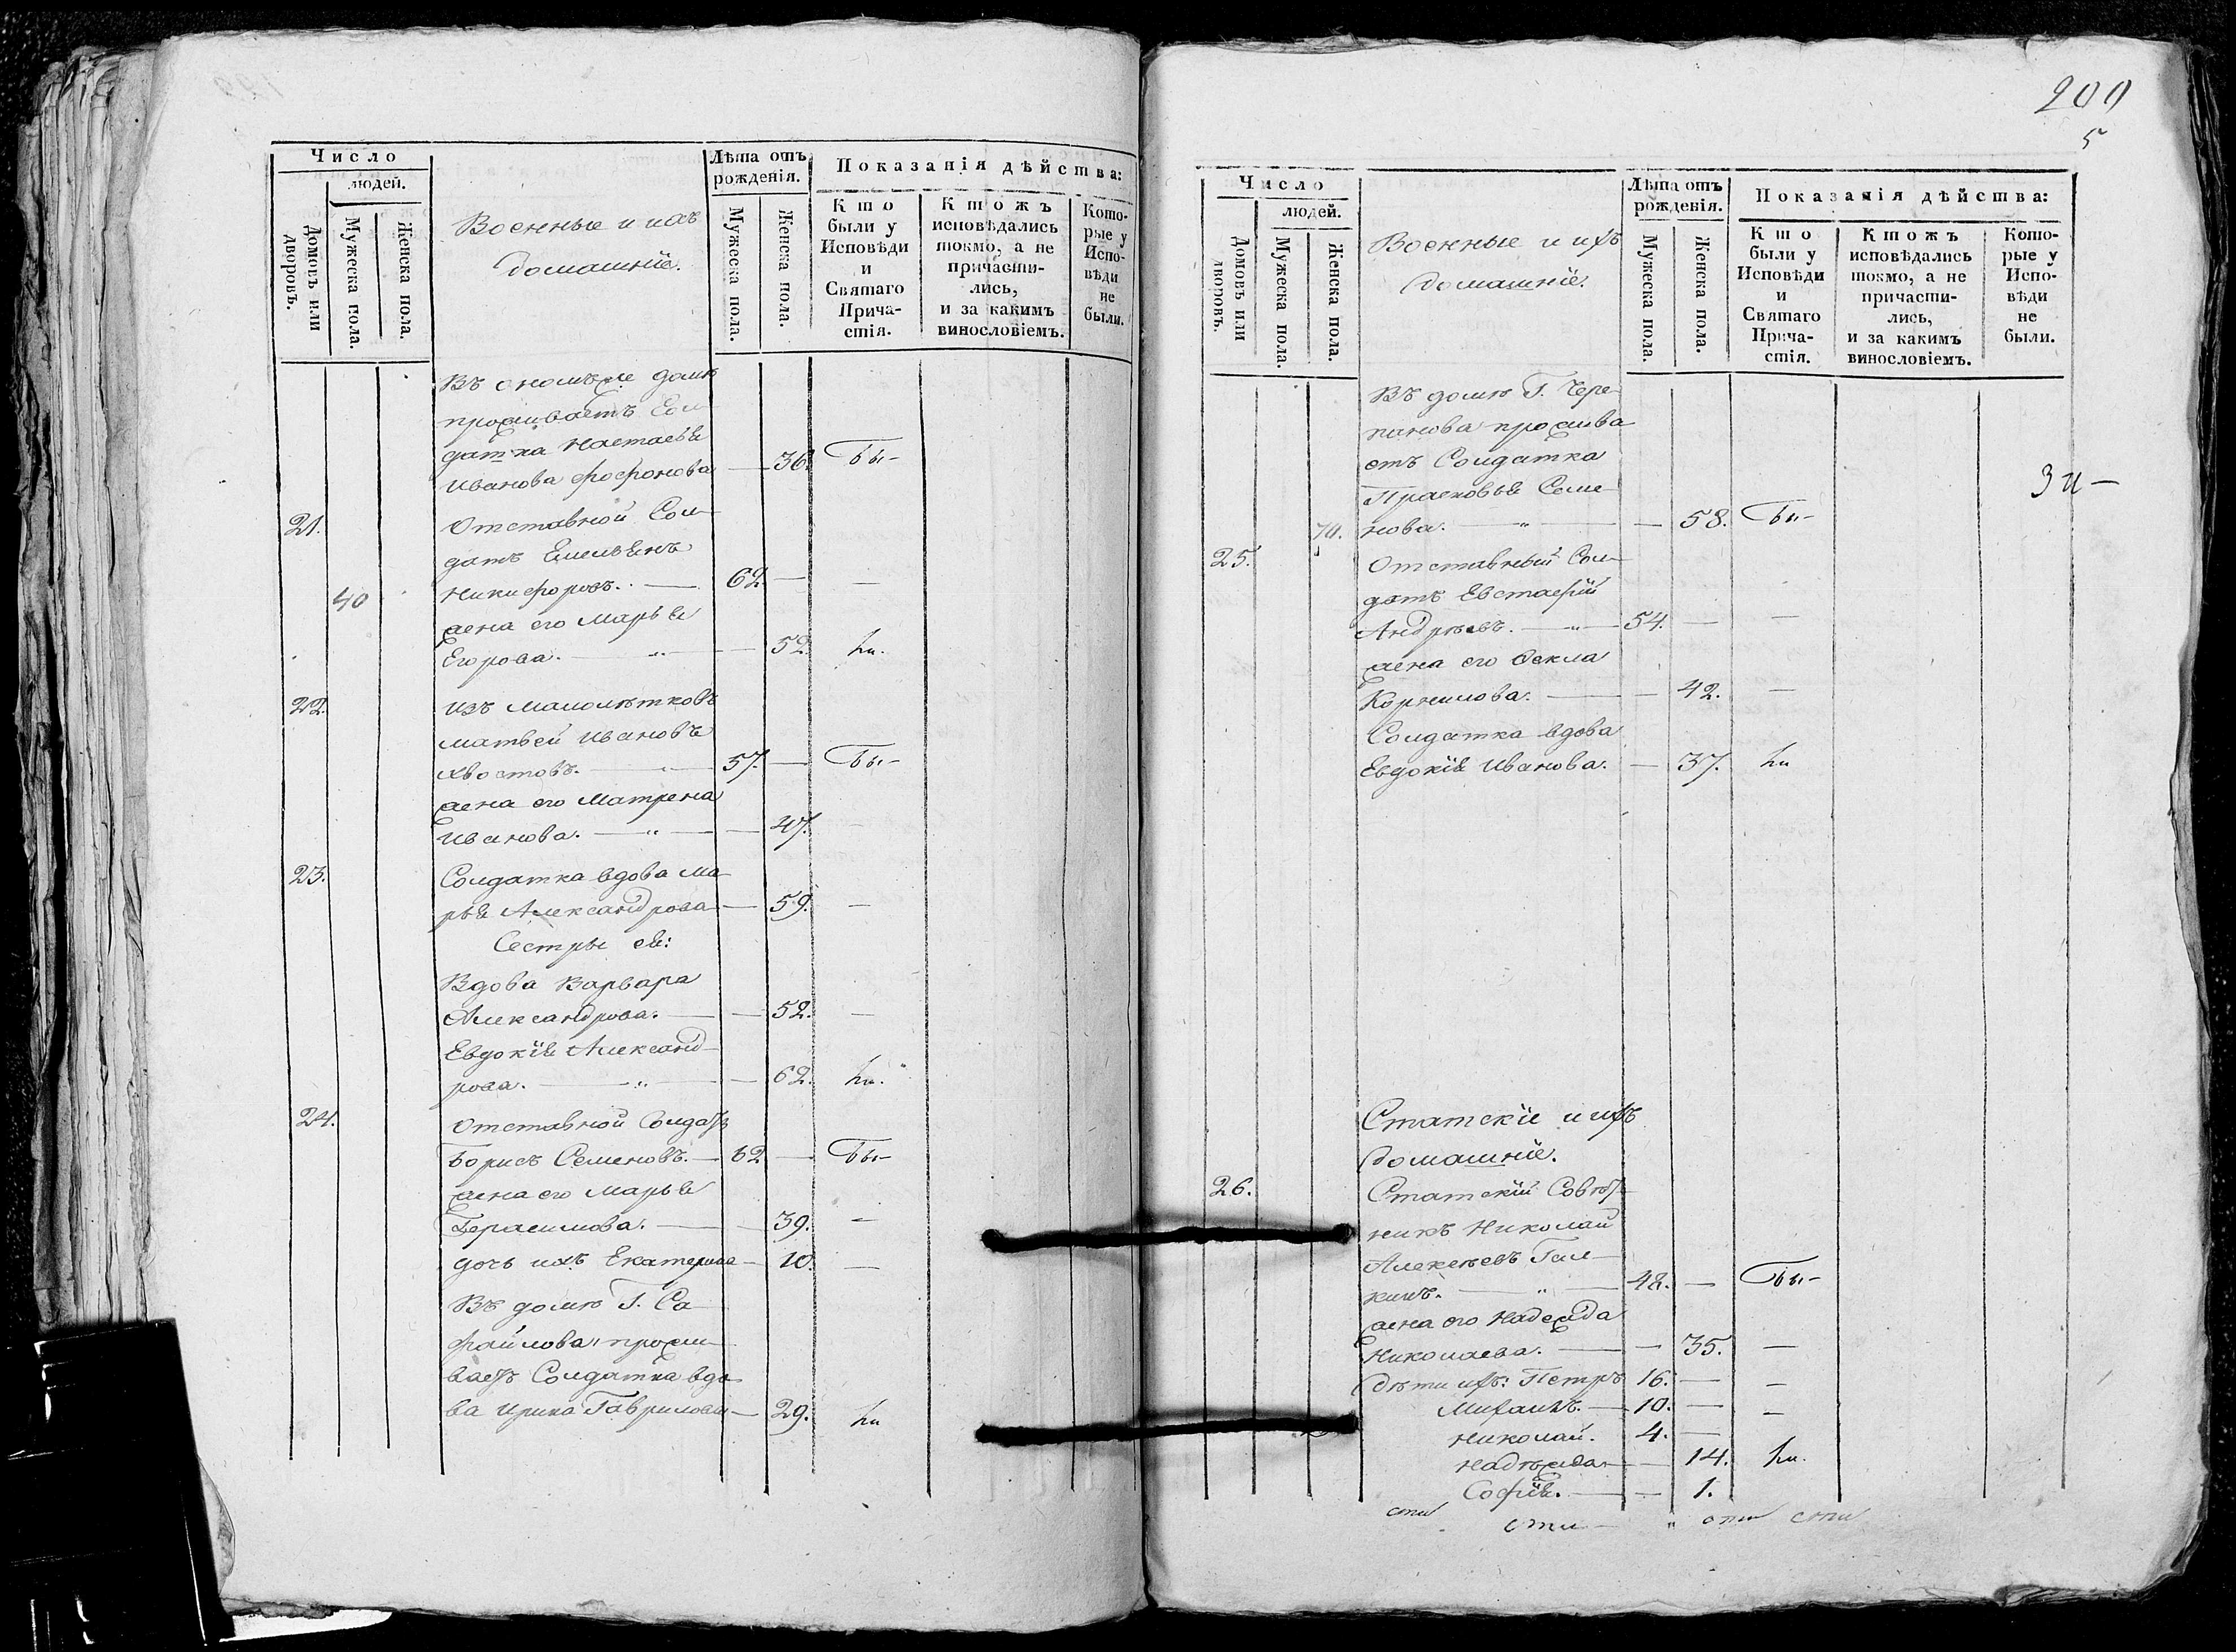 Число
людей.
Домовъ или дворовъ.
Мужеска пола.
Женска пола.
Военные и ихъ
домашніе.
Лѣта отъ
рожденія.
Мужеска пола.
Женска пола.
Показанія дѣйства:
Кто
были у
Исповѣди
и
Святаго
Прича-
стія.
Ктожъ
исповѣдались
токмо, а не
причасти-
лись,
и за какимъ
винословіемъ.
Кото-
рые у
Испо-
вѣди
не
были.
Въ ономъже домѣ
проживаетъ Сол-
датка Настасья
Иванова Фофонова — 36. Бы-
21. Отставной Сол-
датъ Емельянъ
40 Никифоровъ. — 62. — —
жена его Марья
Егорова. — „ — — 52. ли.
22. Изъ малолѣтковъ
Матвей Ивановъ
Хвостовъ. — „ — 57. — Бы-
жена его Матрена
Иванова. — „ — — 47. —
23. Солдатка вдова Ма-
рья Александрова — 59. —
Сестры ея:
Вдова Варвара
Александрова. — — 52. —
Евдокія Александ-
рова. — „ — — 62. ли.
24. Отставной Солдатъ
Борисъ Семеновъ. — 62 — Бы-
жена его Марья
Герасимова. — — 39. —
дочь ихъ Екатерина — 10. —
Въ домѣ Г. Са
файлова прожи-
ваетъ Солдатка вдо
ва Ирина Гаврилова — 29. ли
200
5
Число
людей.
Домовъ или дворовъ.
Мужеска пола.
Женска пола.
Военные и ихъ
домашніе.
Лѣта отъ
рожденія.
Мужеска пола.
Женска пола.
Показанія дѣйства:
Кто
были у
Исповѣди
и
Святаго
Прича-
стія.
Ктожъ
исповѣдались
токмо, а не
причасти-
лись,
и за какимъ
винословіемъ.
Кото-
рые у
Испо-
вѣди
не
были.
Въ домѣ Г. Чере-
панова прожива
етъ Солдатка
Прасковья Семе-
нова. — „ — — 58. Бы-
25. Отставный Сол-
датъ Евстафій
Андрѣевъ. — „ — 54. — —
жена его Фекла
Корнилова. — — 42. —
Солдатка вдова
Евдокія Иванова. — 37. ли
Статскіе и ихъ
домашніе.
26. Статскій Совѣт-
никъ Николай
Алексѣевъ
— „ — 48. — Бы-
жена его Надежда
Николаева. — — 35. —
Дѣти ихъ: Петръ 16. — —
Михаилъ. — 10. — —
Николай. 4. —
Надѣжда — — 14. ли.
Софія. — — 1.